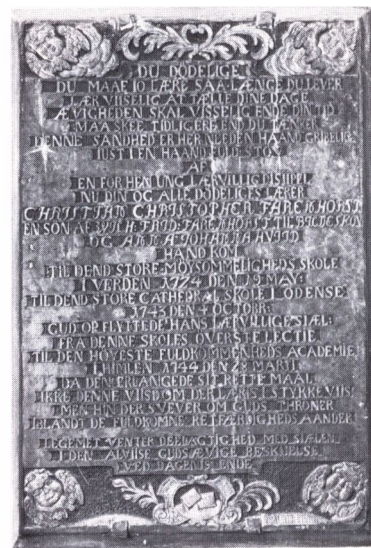 DU DÖDELIGE
DU MAAE JO LÆRE SAA LÆNGE DU LEVER
LÆR VIISELIG AT TÆLLE DINE DAGE
ÆVIGHEDEN SKAL VISSELIG ENDE DIN TID
MAA SKEE TIDLIGERE END DU
DENNE SANDHED ER HER NEDEN HAAND GRIBELIG
JUST I EN HAANDFULD STÖV
AF
EN FORHEN UNG ÆRVILLIG DISIPEL
NU DIN OG ALLE DÖDELIGES LÆRER
CHRISTIAN CHRISTOPHER
EN SÖN AF
OG ANNA JOHANNA HVIID
HAND KOM
TIL DEND STORE MÖYSOMMELIGHEDS SKOLE
I VERDEN DEN 19 MAY
TIL DEND STORE CATHEDRAL SKOLE I ODENSE
1743 DEN 4 OCTOBR:
GUD OPFLYTTEDE HANS LÆRVILLIGE SIÆL
FRA DENNE SKOLES ÖVERSTE LECTIE
TIL DEN HÖYESTE FULDKOMMENHEDS ACADEMIE
I HIMLEN 1744 DEN 28 MARTI
DA DEN ERLANGEDE SIT RETTE MAAL
IKKE DENNE VIISDOM DER LÆRIS I STYKKEVIIS
MEN HIN DER SVEVER OM GUDS THRONER
IBLANDT DE FULDKOMNE RETFÆRDIGHEDS AANDER
LEGEMET VENTER DEELAGTIGHED MED SIÆLEN
I DEN ALVIISE GUDS ÆVIGE BESKUELSE
VED DAGENIS ENDE